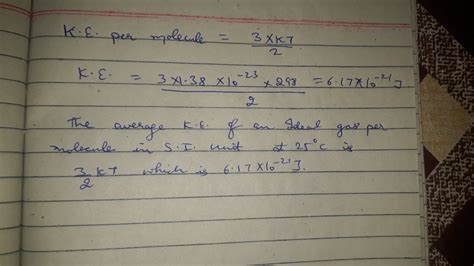 K.E. per molecule = 3 X KT / 2
K.E. = 3 X 1.38 X 10⁻²³ X 298 / 2 = 6.17 X 10⁻²¹ J.
The average K.E. of an Ideal gas per
molecule in S.I. Unit at 25°C is
3/2 KT which is 6.17 X 10⁻²¹ J.